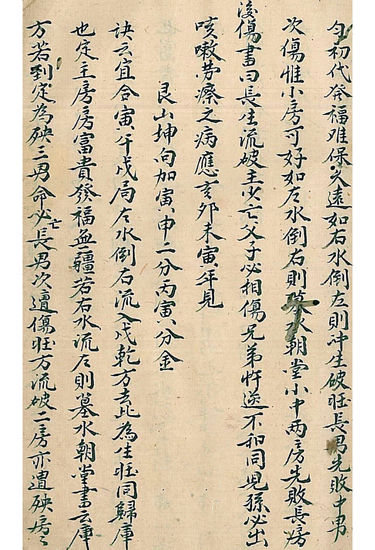 匀初代發福难保久遠如右水倒左則冲生破旺長男先敗中男
次傷惟小房可好如左水倒右則墓水朝堂小中两房先敗長房
後傷書曰長生流破主少亡父子必相傷兄弟忤逆不和同児孫必出
咳嗽劳瘵之病應亥卯未寅年見
艮山坤向加寅申二分丙寅分金
訣云宜合寅午戌局左水倒右流入戌乾方去此為生旺同歸庫
也定主房房富貴發福無疆若右水流左則墓水朝堂書云庫
方若到定為殃二男命必亡長男次遭傷旺方流破二房亦遭殃